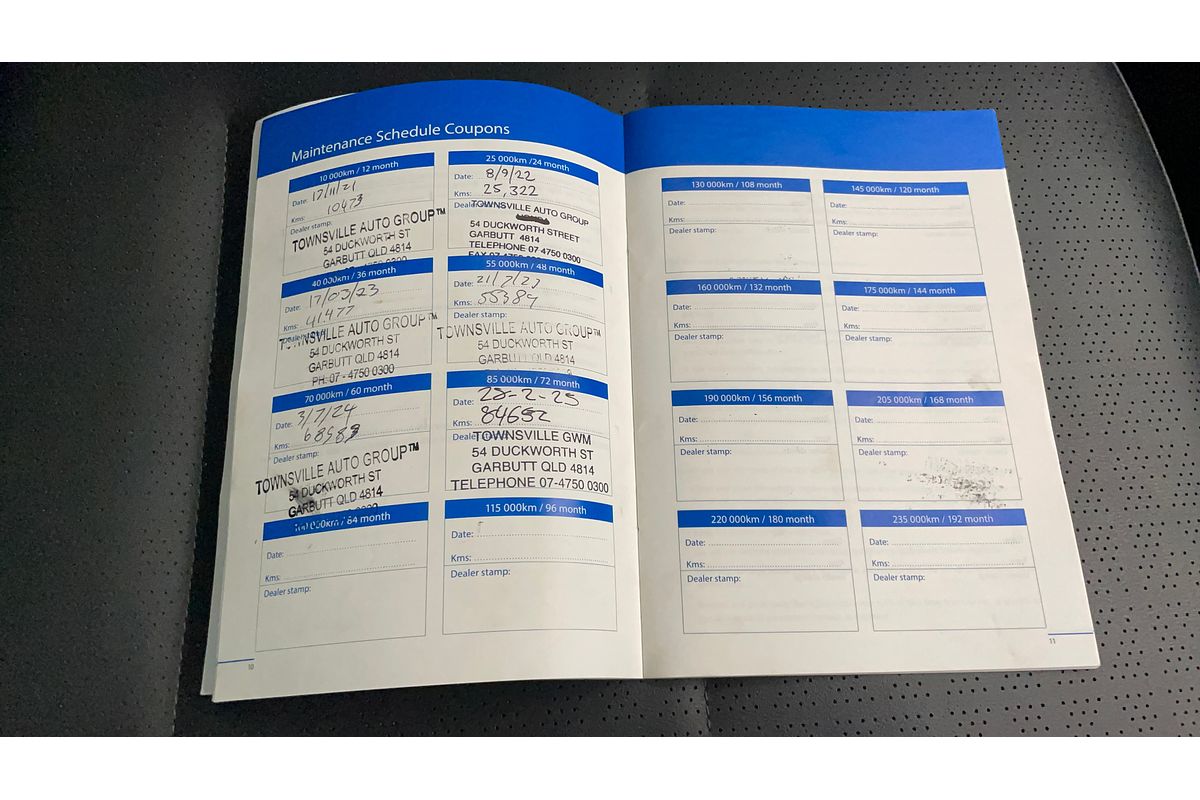 Maintenance Schedule Coupons
10 000km / 12 month
Date: 17/11/21
Kms: 10473
Dealer stamp:
TOWNSVILLE AUTO GROUP™
54 DUCKWORTH ST
GARBUTT QLD 4814
25 000km /24 month
Date: 8/9/22
Kms: 25,322
TOWNSVILLE AUTO GROUP
54 DUCKWORTH STREET
GARBUTT 4814
TELEPHONE 07 4750 0300
40 000km / 36 month
Date: 17/03/23
Kms: 41477
Dealer stamp:
TOWNSVILLE AUTO GROUP™
54 DUCKWORTH ST
GARBUTT QLD 4814
PH: 07 - 4750 0300
55 000km / 48 month
Date: 21/7/23
Kms: 55389
Dealer stamp:
TOWNSVILLE AUTO GROUP™
54 DUCKWORTH ST
GARBUTT QLD 4814
70 000km / 60 month
Date: 3/7/24
Kms: 68583
Dealer stamp:
TOWNSVILLE AUTO GROUP™
54 DUCKWORTH ST
GARBUTT QLD 4814
85 000km / 72 month
Date: 28-2-25
Kms: 84652
TOWNSVILLE GWM
54 DUCKWORTH ST
GARBUTT QLD 4814
TELEPHONE 07-4750 0300
100 000km / 84 month
Date:
Kms:
Dealer stamp:
115 000km / 96 month
Date:
Kms:
Dealer stamp:
10
130 000km / 108 month
Date:
Kms:
Dealer stamp:
145 000km / 120 month
Date:
Kms:
Dealer stamp:
160 000km / 132 month
Date:
Kms:
Dealer stamp:
175 000km / 144 month
Date:
Kms:
Dealer stamp:
190 000km / 156 month
Date:
Kms:
Dealer stamp:
205 000km / 168 month
Date:
Kms:
Dealer stamp:
220 000km / 180 month
Date:
Kms:
Dealer stamp:
235 000km / 192 month
Date:
Kms:
Dealer stamp:
11